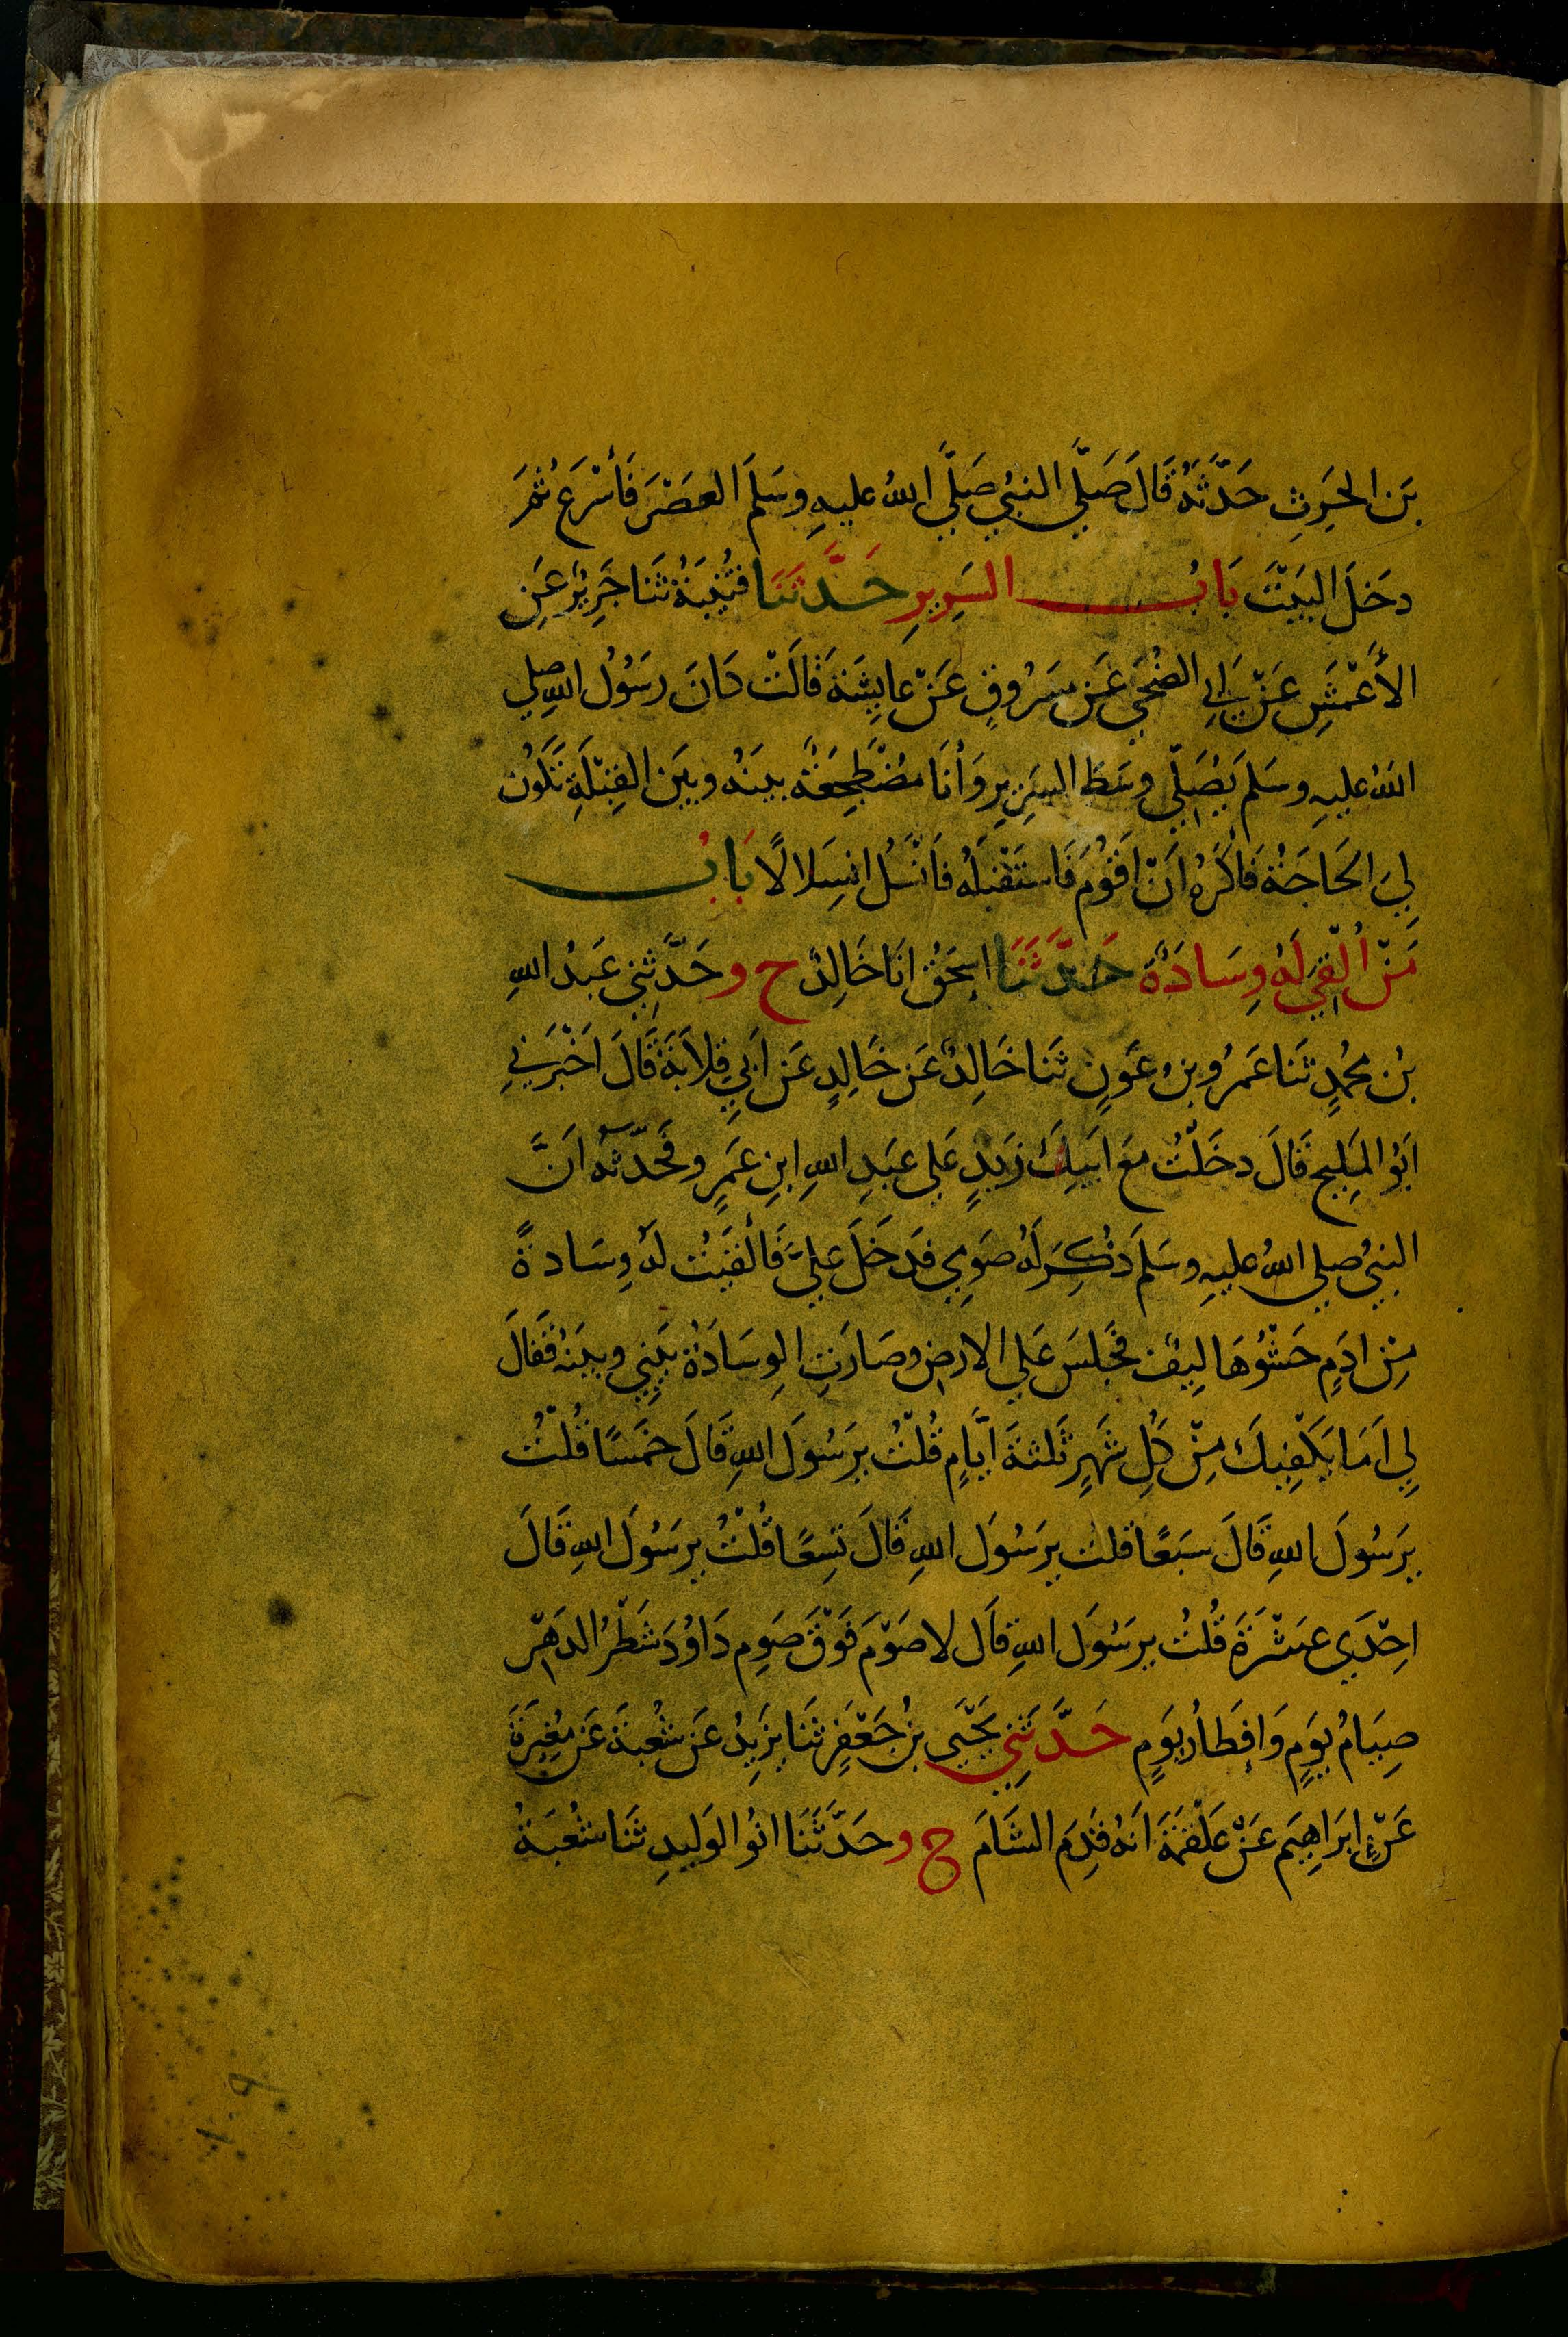 بْنَ الحٰرِثِ حَدَّثَهُ قَالَ صَلَّي النبيُ صَلَّي اللهُ عليهِ وسَلمَ العَصْرَ فَأسْرَعَ ثمَّ
دخَلَ البَيْتَ بَابُ السَرِيرِ حَدَّثَنَا قُتَيْبَةُ ثَنا جَرِيْرٌ عَنِ
الأَعْمَشِ عَنْ ابي الضُحَي عَن مسَرُوقٍ عَنْ عايِشَةَ قَالَتْ كانَ رسَوُلُ اللهِ صلي
اللهُ عليهِ وسَلمَ يُصَلّي وسَطَ السَرِيرِ وَأنَا مُضْطَجِعَةٌ بينَهُ وبيَن القِبْلَةِ تَكُونُ
لِيَ الحَاجَةُ فَاكرَهُ اَنْ اقَوُمَ فَاستَقْبَلَهُ فَاَنْسَلُّ انسِلالًا بَابُ
مَنْ اُلْقِيَ لَهُ وِسَادَةٌ حَدَّثَنَا اسحٰقُ انَا خَالِدٌ ح وحَدَّثني عَبدُ اللهِ
بْنُ محُمدٍ ثَنا عَمرُو بنُ عَونٍ ثَنا خَالِدٌ عَن خَالِدٍ عَن اَبي قِلَابَةَ قَالَ اَخْبَرَني
ابَوُ المَلِيحِ قَالَ دخَلْتُ معَ ابَيكَ زَيدٍ عَلي عَبدِ اللهِ ابنِ عَمرٍو فَحَدَّثَنَا اَنَّ
النبيَ صلي اللهُ عليهِ وسَلمَ ذُكِرَ لَهُ صَوِمي فدَخَلَ عليَّ فَالْقَيْتُ لهُ وِسَادةً
مِن ادَمٍ حَشْوُهَا ليِفٌ فجَلسَ عَلي الارضِ وصَارَتِ الوِسَادَةُ بيَنِي وبيَنهُ فَقالَ
لِي اَمَا يَكْفِيكَ مِنْ كُلِ شَهرٍ ثَلثةَ اَيَّامٍ قُلْتُ يرَسُولَ اللهِ قَالَ خمَسًا قُلْتُ
يرَسُولَ اللهِ قَالَ سَبعًا قلتُ يرَسُولَ اللهِ قَالَ تسِعًا قُلْتُ يرَسُولَ اللهِ قَالَ
احِدَي عشَرَةَ قُلتُ يرسُولَ اللهِ قاَل لا صَوْمَ فَوْقَ صَومِ دَاوُدَ شَطْرُ الدَهْر
صِيَامُ يوَمٍ وَافِطَارُ يوَمٍ حَدَّثَنِي يَحْيَي بنُ جَعْفَرٍ ثنَا يزَيِدُ عَن شُعبةَ عَن مُغِيرَةَ
عَنْ ابرَاهِيَم عَنْ عَلْقمَةَ انَهُ قدِمَ الشَامَ ح وحَدَّثَنَا ابوُ الوَليدِ ثنَا شُعبَةُ